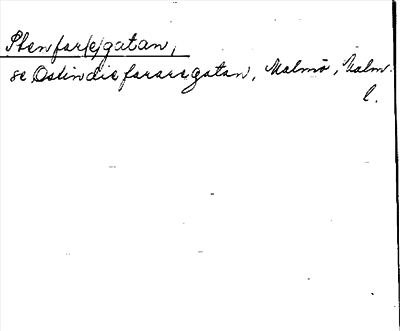 Stenfar(e)gatan,
se Ostindiefararegatan, Malmö, Malm.
l.